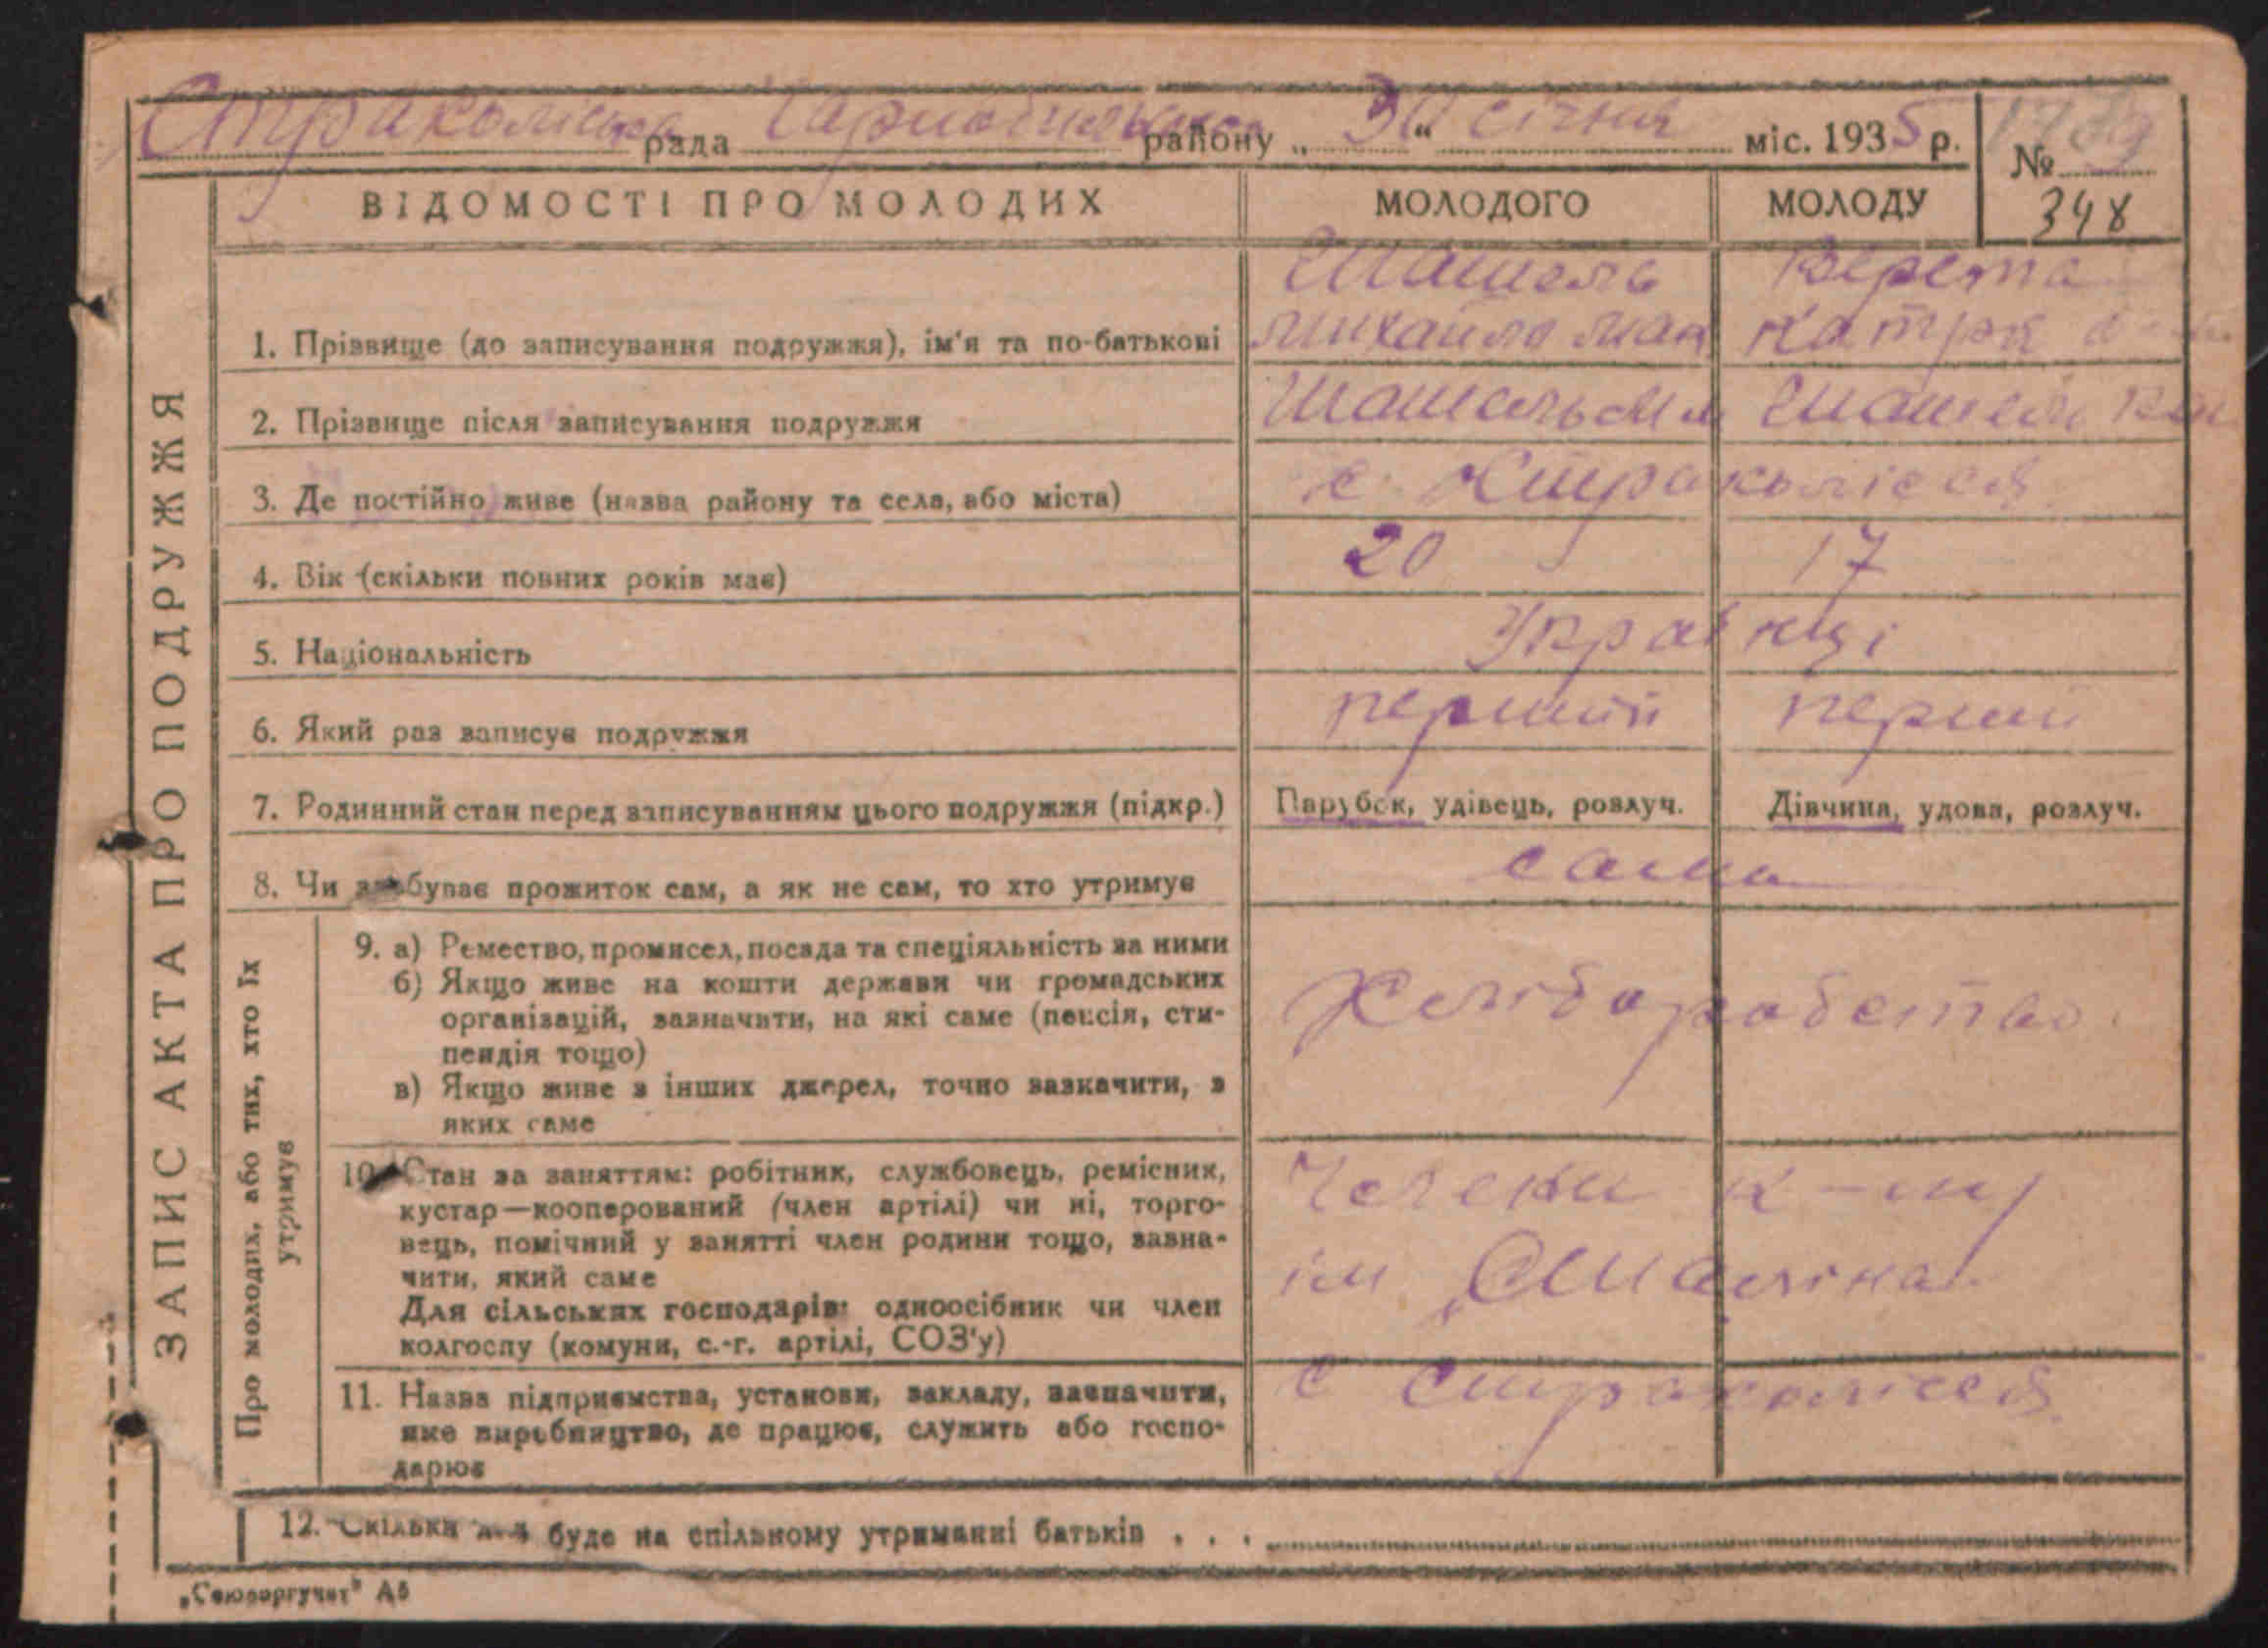 Страколіська рада Чорнобильськ району „30“ січня міс. 1935 р.
№
348
ВІДОМОСТІ ПРО МОЛОДИХ МОЛОДОГО МОЛОДУ
Шашель Верета
1. Прізвище (до записування подружжя), ім'я та по-батькові Михайло Мак Катря
2. Прізвище після записування подружжя Шашель Шашель
3. Де постійно живе (назва району та села, або міста) с. Страколісся
4. Вік (скільки повних років має) 20 17
5. Національність Українці
6. Який раз записує подружжя перший перший
7. Родинний стан перед записуванням цього подружжя (підкр.) Парубок, удівець, розлуч. Дівчина, удова, розлуч.
8. Чи здобуває прожиток сам, а як не сам, то хто утримує сама
9. а) Ремество, промисел, посада та спеціяльність за ними
б) Якщо живе на кошти держави чи громадських
організацій, зазначити, на які саме (пенсія, сти-
пендія тощо)
в) Якщо живе з інших джерел, точно зазначити, з
яких саме
Хліборобство.
10. Стан за заняттям: робітник, службовець, ремісник,
кустар—кооперований (член артілі) чи ні, торго-
вець, помічний у занятті член родини тощо, зазна-
чити, який саме
Для сільських господарів: одноосібник чи член
колгоспу (комуни, с.-г. артілі, СОЗ'у)
Члени к-пу
ім. Сталіна
11. Назва підприємства, установи, закладу, зазначити,
яке виробництво, де працює, служить або госпо-
дарює
с Страколісся
12. Скільки дітей буде на спільному утриманні батьків . . .
ЗАПИС АКТА ПРО ПОДРУЖЖЯ
Про молодих, або тих, хто їх
утримує
„Союзоргучет" А5